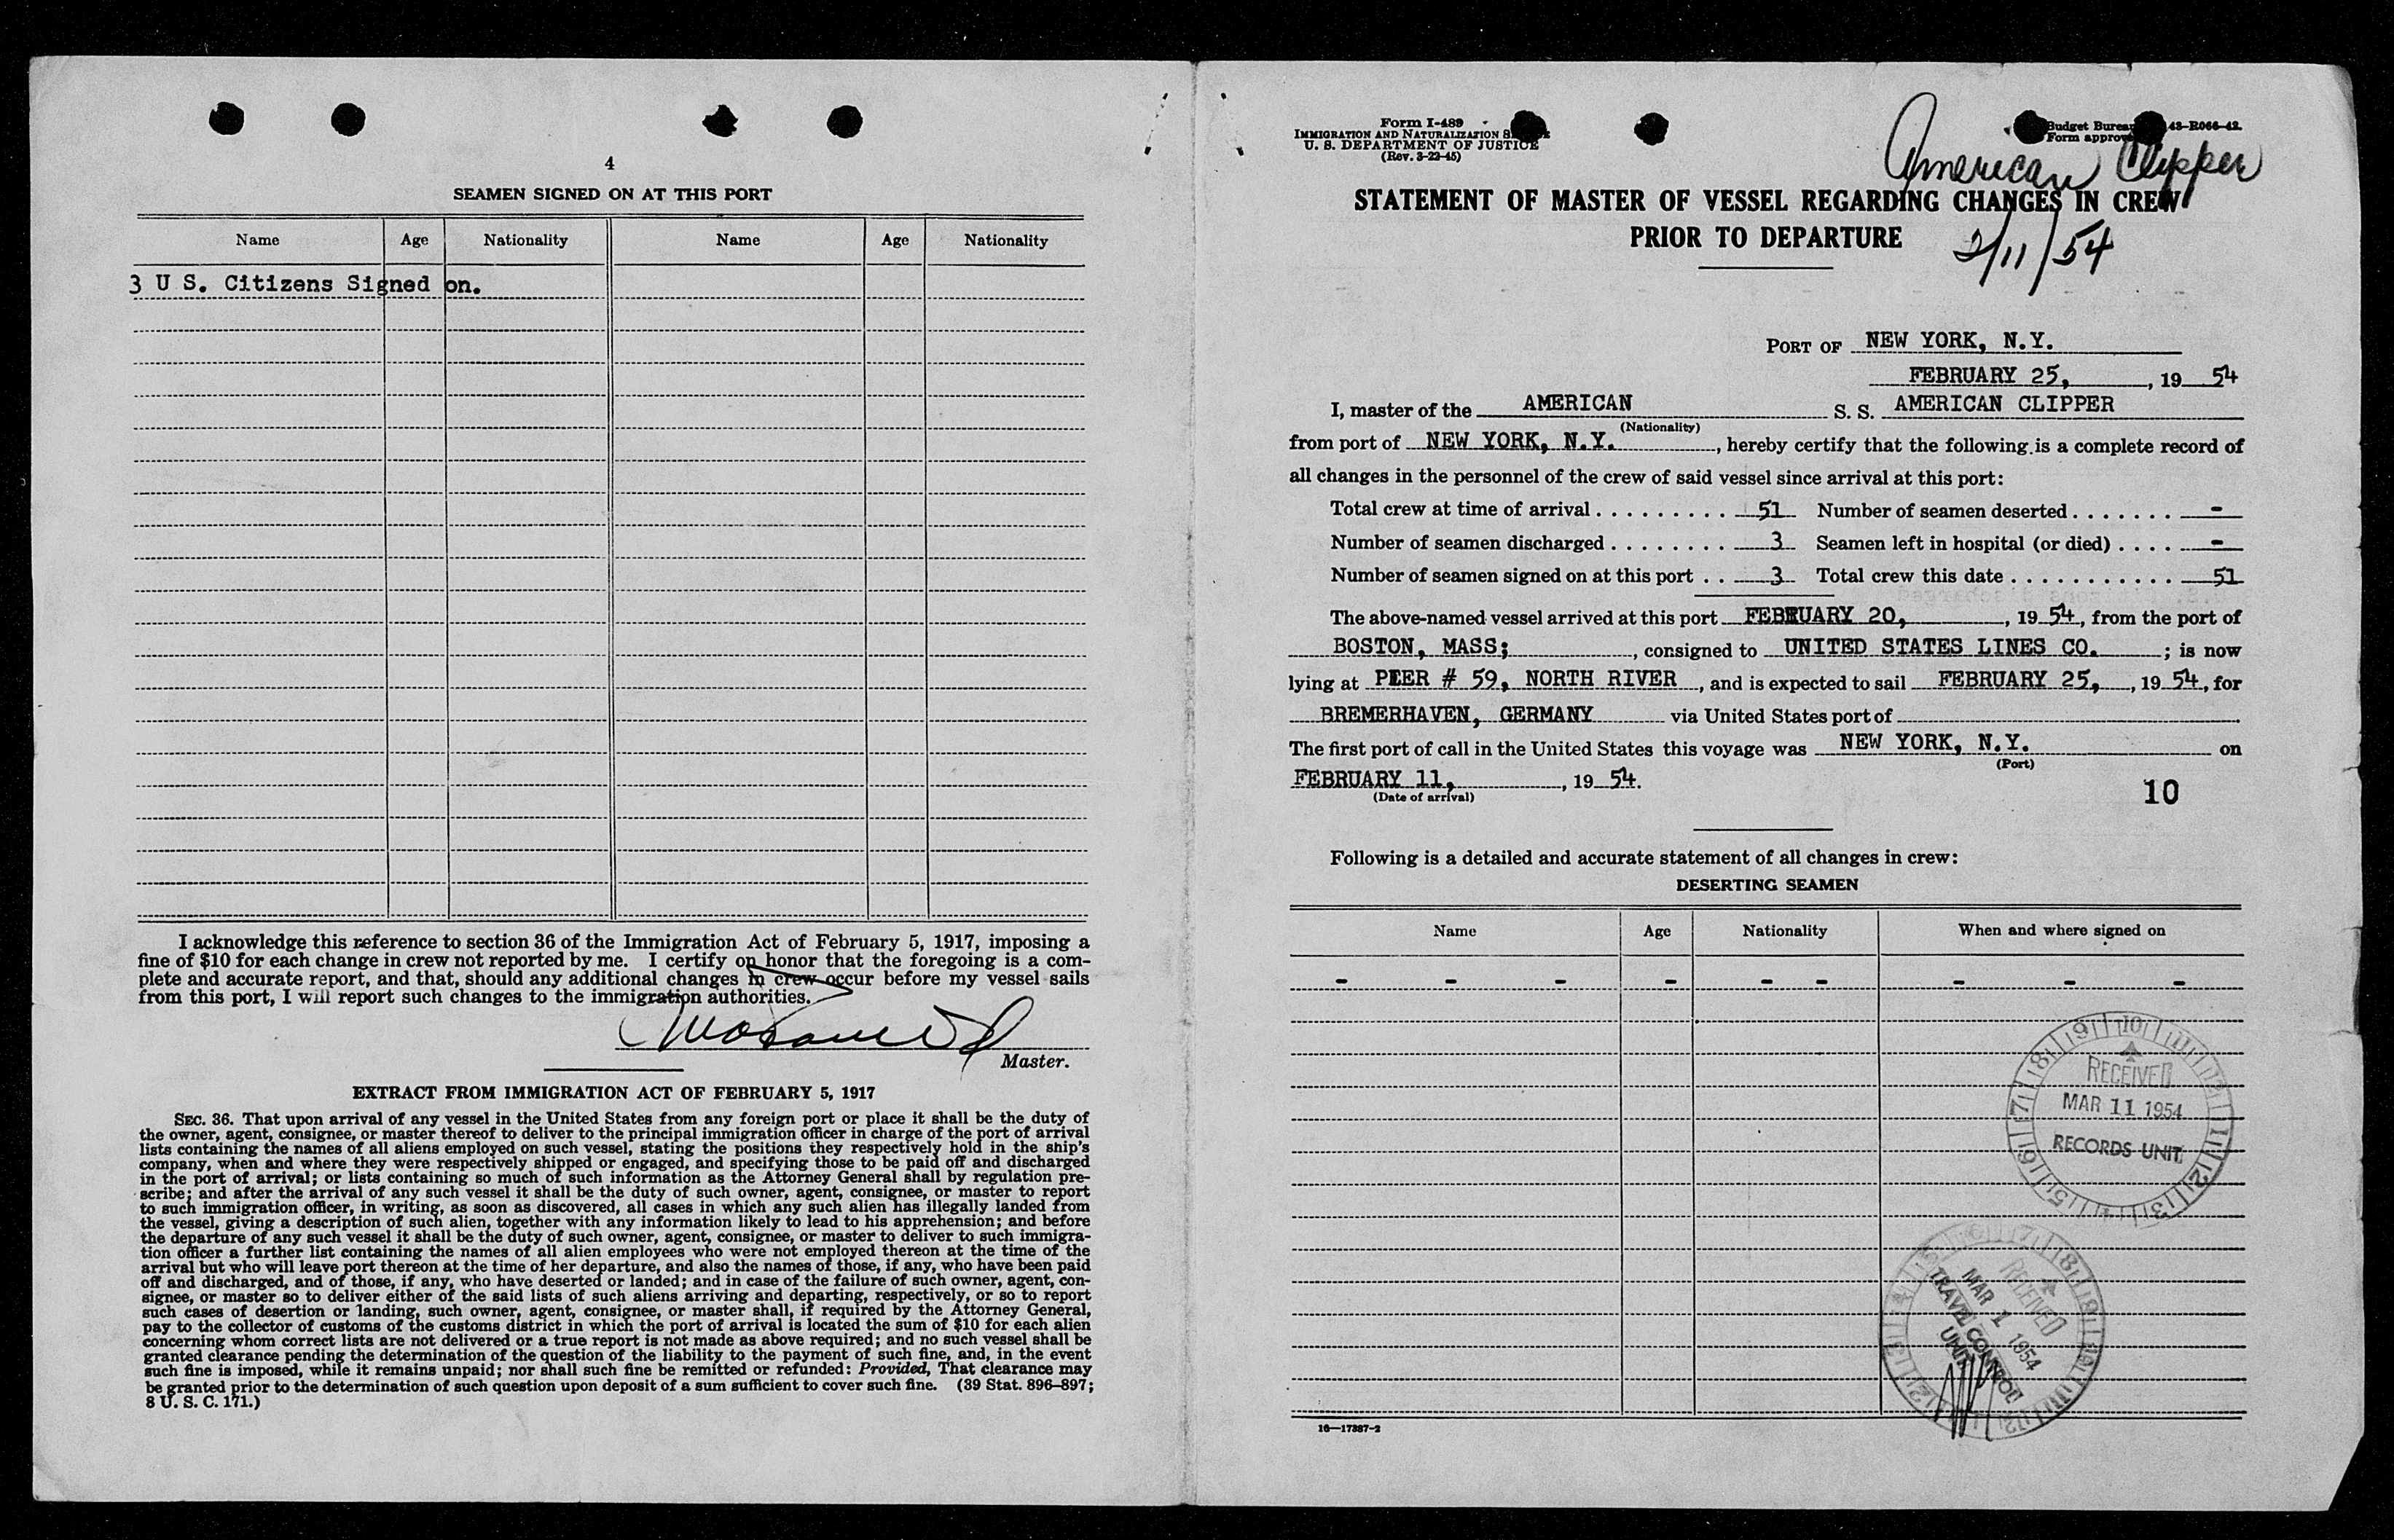 4
SEAMEN SIGNED ON AT THIS PORT
Name Age Nationality Name Age Nationality
3 U S. Citizens Signed on.
I acknowledge this reference to section 36 of the Immigration Act of February 5, 1917, imposing a
fine of $10 for each change in crew not reported by me. I certify on honor that the foregoing is a com-
plete and accurate report, and that, should any additional changes in crew occur before my vessel sails
from this port, I will report such changes to the immigration authorities.
Master.
EXTRACT FROM IMMIGRATION ACT OF FEBRUARY 5, 1917
SEC. 36. That upon arrival of any vessel in the United States from any foreign port or place it shall be the duty of
the owner, agent, consignee, or master thereof to deliver to the principal immigration officer in charge of the port of arrival
lists containing the names of all aliens employed on such vessel, stating the positions they respectively hold in the ship's
company, when and where they were respectively shipped or engaged, and specifying those to be paid off and discharged
in the port of arrival; or lists containing so much of such information as the Attorney General shall by regulation pre-
scribe; and after the arrival of any such vessel it shall be the duty of such owner, agent, consignee, or master to report
to such immigration officer, in writing, as soon as discovered, all cases in which any such alien has illegally landed from
the vessel, giving a description of such alien, together with any information likely to lead to his apprehension; and before
the departure of any such vessel it shall be the duty of such owner, agent, consignee, or master to deliver to such immigra-
tion officer a further list containing the names of all alien employees who were not employed thereon at the time of the
arrival but who will leave port thereon at the time of her departure, and also the names of those, if any, who have been paid
off and discharged, and of those, if any, who have deserted or landed; and in case of the failure of such owner, agent, con-
signee, or master so to deliver either of the said lists of such aliens arriving and departing, respectively, or so to report
such cases of desertion or landing, such owner, agent, consignee, or master shall, if required by the Attorney General,
pay to the collector of customs of the customs district in which the port of arrival is located the sum of $10 for each alien
concerning whom correct lists are not delivered or a true report is not made as above required; and no such vessel shall be
granted clearance pending the determination of the question of the liability to the payment of such fine, and, in the event
such fine is imposed, while it remains unpaid; nor shall such fine be remitted or refunded: Provided, That clearance may
be granted prior to the determination of such question upon deposit of a sum sufficient to cover such fine. (39 Stat. 896–897;
8 U. S. C. 171.)
Form I-489
IMMIGRATION AND NATURALIZATION
U. S. DEPARTMENT OF JUSTICE
(Rev. 3-22-45)
Budget Bureau 43-R066-42.
Form approved
American Clipper
STATEMENT OF MASTER OF VESSEL REGARDING CHANGES IN CREW
PRIOR TO DEPARTURE
2/11/54
PORT OF NEW YORK, N.Y.
FEBRUARY 25, , 19 54
I, master of the AMERICAN S. S. AMERICAN CLIPPER
(Nationality)
from port of NEW YORK, N.Y. , hereby certify that the following is a complete record of
all changes in the personnel of the crew of said vessel since arrival at this port:
Total crew at time of arrival . . . . . . . . . 51 Number of seamen deserted . . . . . . . -
Number of seamen discharged . . . . . . . . 3 Seamen left in hospital (or died) . . . . -
Number of seamen signed on at this port . . 3 Total crew this date . . . . . . . . . . . 51
The above-named vessel arrived at this port FEBRUARY 20, , 19 54, from the port of
BOSTON, MASS; , consigned to UNITED STATES LINES CO. ; is now
lying at PIER # 59, NORTH RIVER , and is expected to sail FEBRUARY 25, , 19 54, for
BREMERHAVEN, GERMANY via United States port of
The first port of call in the United States this voyage was NEW YORK, N.Y. on
(Port)
FEBRUARY 11, , 19 54.
(Date of arrival)
10
Following is a detailed and accurate statement of all changes in crew:
DESERTING SEAMEN
Name Age Nationality When and where signed on
- - - - - - - - -
RECEIVED
MAR 11 1954
RECORDS UNIT
RECEIVED
MAR 1 1954
TRAVEL CONTROL
UNIT
16—17387-2